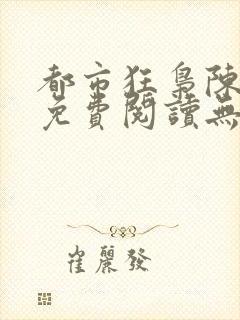 都市狂梟陳
免費閱讀無
崔麗發